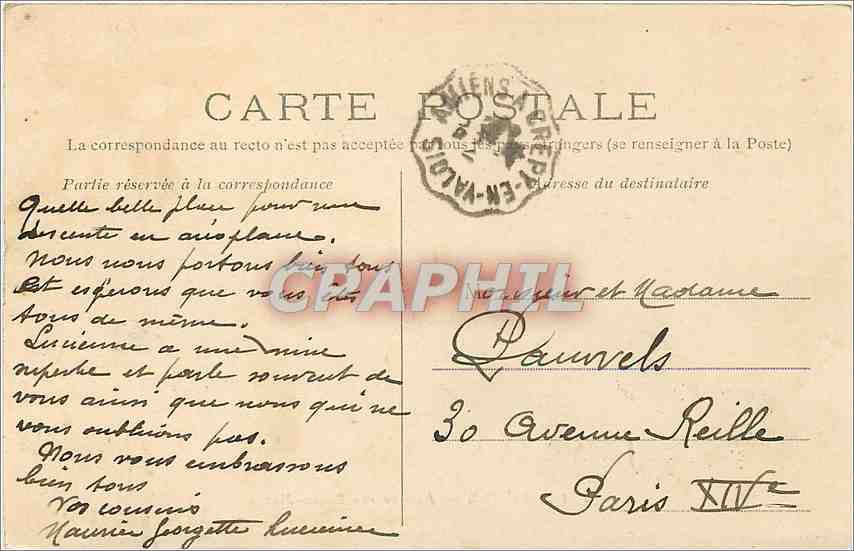 CARTE POSTALE
La correspondance au recto n'est pas acceptée par tous les pays étrangers (se renseigner à la Poste)
AMIENS A CREPY-EN-VALOIS
Partie réservée à la correspondance
Adresse du destinataire
Quelle belle place pour une
descente en aéroplane.
Nous nous portons bien tous
et espérons que vous êtes
tous de même.
Lucienne a une mine
superbe et parle souvent de
vous ainsi que nous qui ne
vous oublions pas.
Nous vous embrassons
bien tous
Vos cousins
Maurice Georgette Lucienne
Monsieur et Madame
Pauwels
30 Avenue Reille
Paris XIVe
CPAPHIL